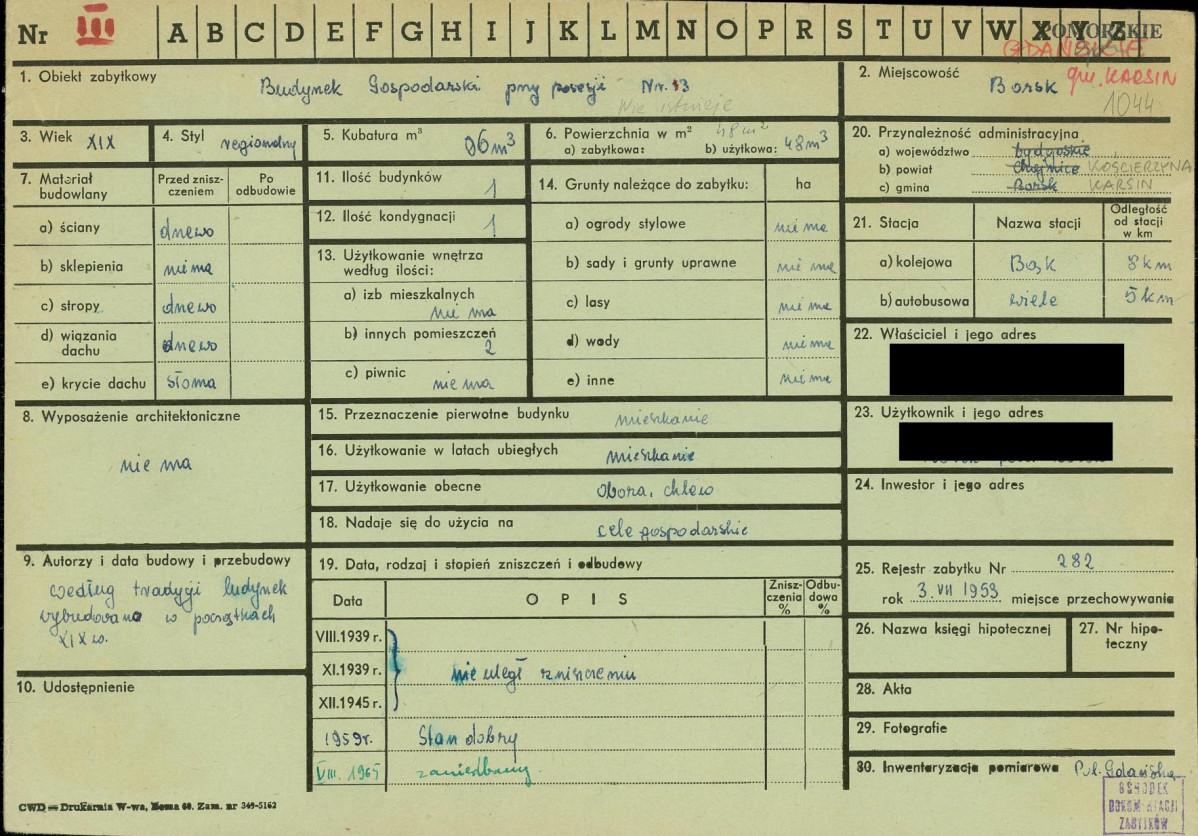 Nr III A B C D E F G H I J K L M N O P R S T U V W X Y Z
POMORSKIE
GDAŃSKIE
gm. KARSIN
1044
1. Obiekt zabytkowy
Budynek Gospodarski przy posesji Nr. 13
Nie istnieje
2. Miejscowość Borsk
3. Wiek XIX
4. Styl regionalny
5. Kubatura m³ 96 m³
6. Powierzchnia w m² 48 m²
a) zabytkowa: b) użytkowa: 48 m³
7. Materiał budowlany
Przed zniszczeniem
Po odbudowie
a) ściany drzewo
b) sklepienia nie ma
c) stropy drzewo
d) wiązania dachu drzewo
e) krycie dachu słoma
8. Wyposażenie architektoniczne
nie ma
9. Autorzy i data budowy i przebudowy
według tradycji budynek
wybudowano w początkach
XIX w.
10. Udostępnienie
11. Ilość budynków 1
12. Ilość kondygnacji 1
13. Użytkowanie wnętrza
według ilości:
a) izb mieszkalnych
nie ma
b) innych pomieszczeń
2
c) piwnic nie ma
14. Grunty należące do zabytku: ha
a) ogrody stylowe nie ma
b) sady i grunty uprawne nie ma
c) lasy nie ma
d) wody nie ma
e) inne nie ma
15. Przeznaczenie pierwotne budynku mieszkanie
16. Użytkowanie w latach ubiegłych mieszkanie
17. Użytkowanie obecne obora, chlew
18. Nadaje się do użycia na cele gospodarskie
19. Data, rodzaj i stopień zniszczeń i odbudowy
Data OPIS Zniszczenia % Odbudowa %
VIII.1939 r.
XI.1939 r. nie uległ zniszczeniu
XII.1945 r.
1959r. Stan dobry
VIII. 1965 zaniedbany.
20. Przynależność administracyjna
a) województwo bydgoskie
b) powiat Chojnice KOŚCIERZYNA
c) gmina Borsk KARSIN
21. Stacja Nazwa stacji Odległość od stacji w km
a) kolejowa Bąk 8 km
b) autobusowa Wiele 5 km
22. Właściciel i jego adres
23. Użytkownik i jego adres
24. Inwestor i jego adres
25. Rejestr zabytku Nr 282
rok 3. VII 1953 miejsce przechowywania
26. Nazwa księgi hipotecznej
27. Nr hipoteczny
28. Akta
29. Fotografie
30. Inwentaryzacja pomiarowa Pol. Gdańska
OŚRODEK
DOKUMENTACJI
ZABYTKÓW
CWD — Drukarnia W-wa, Homa 60. Zam. nr 349-5162